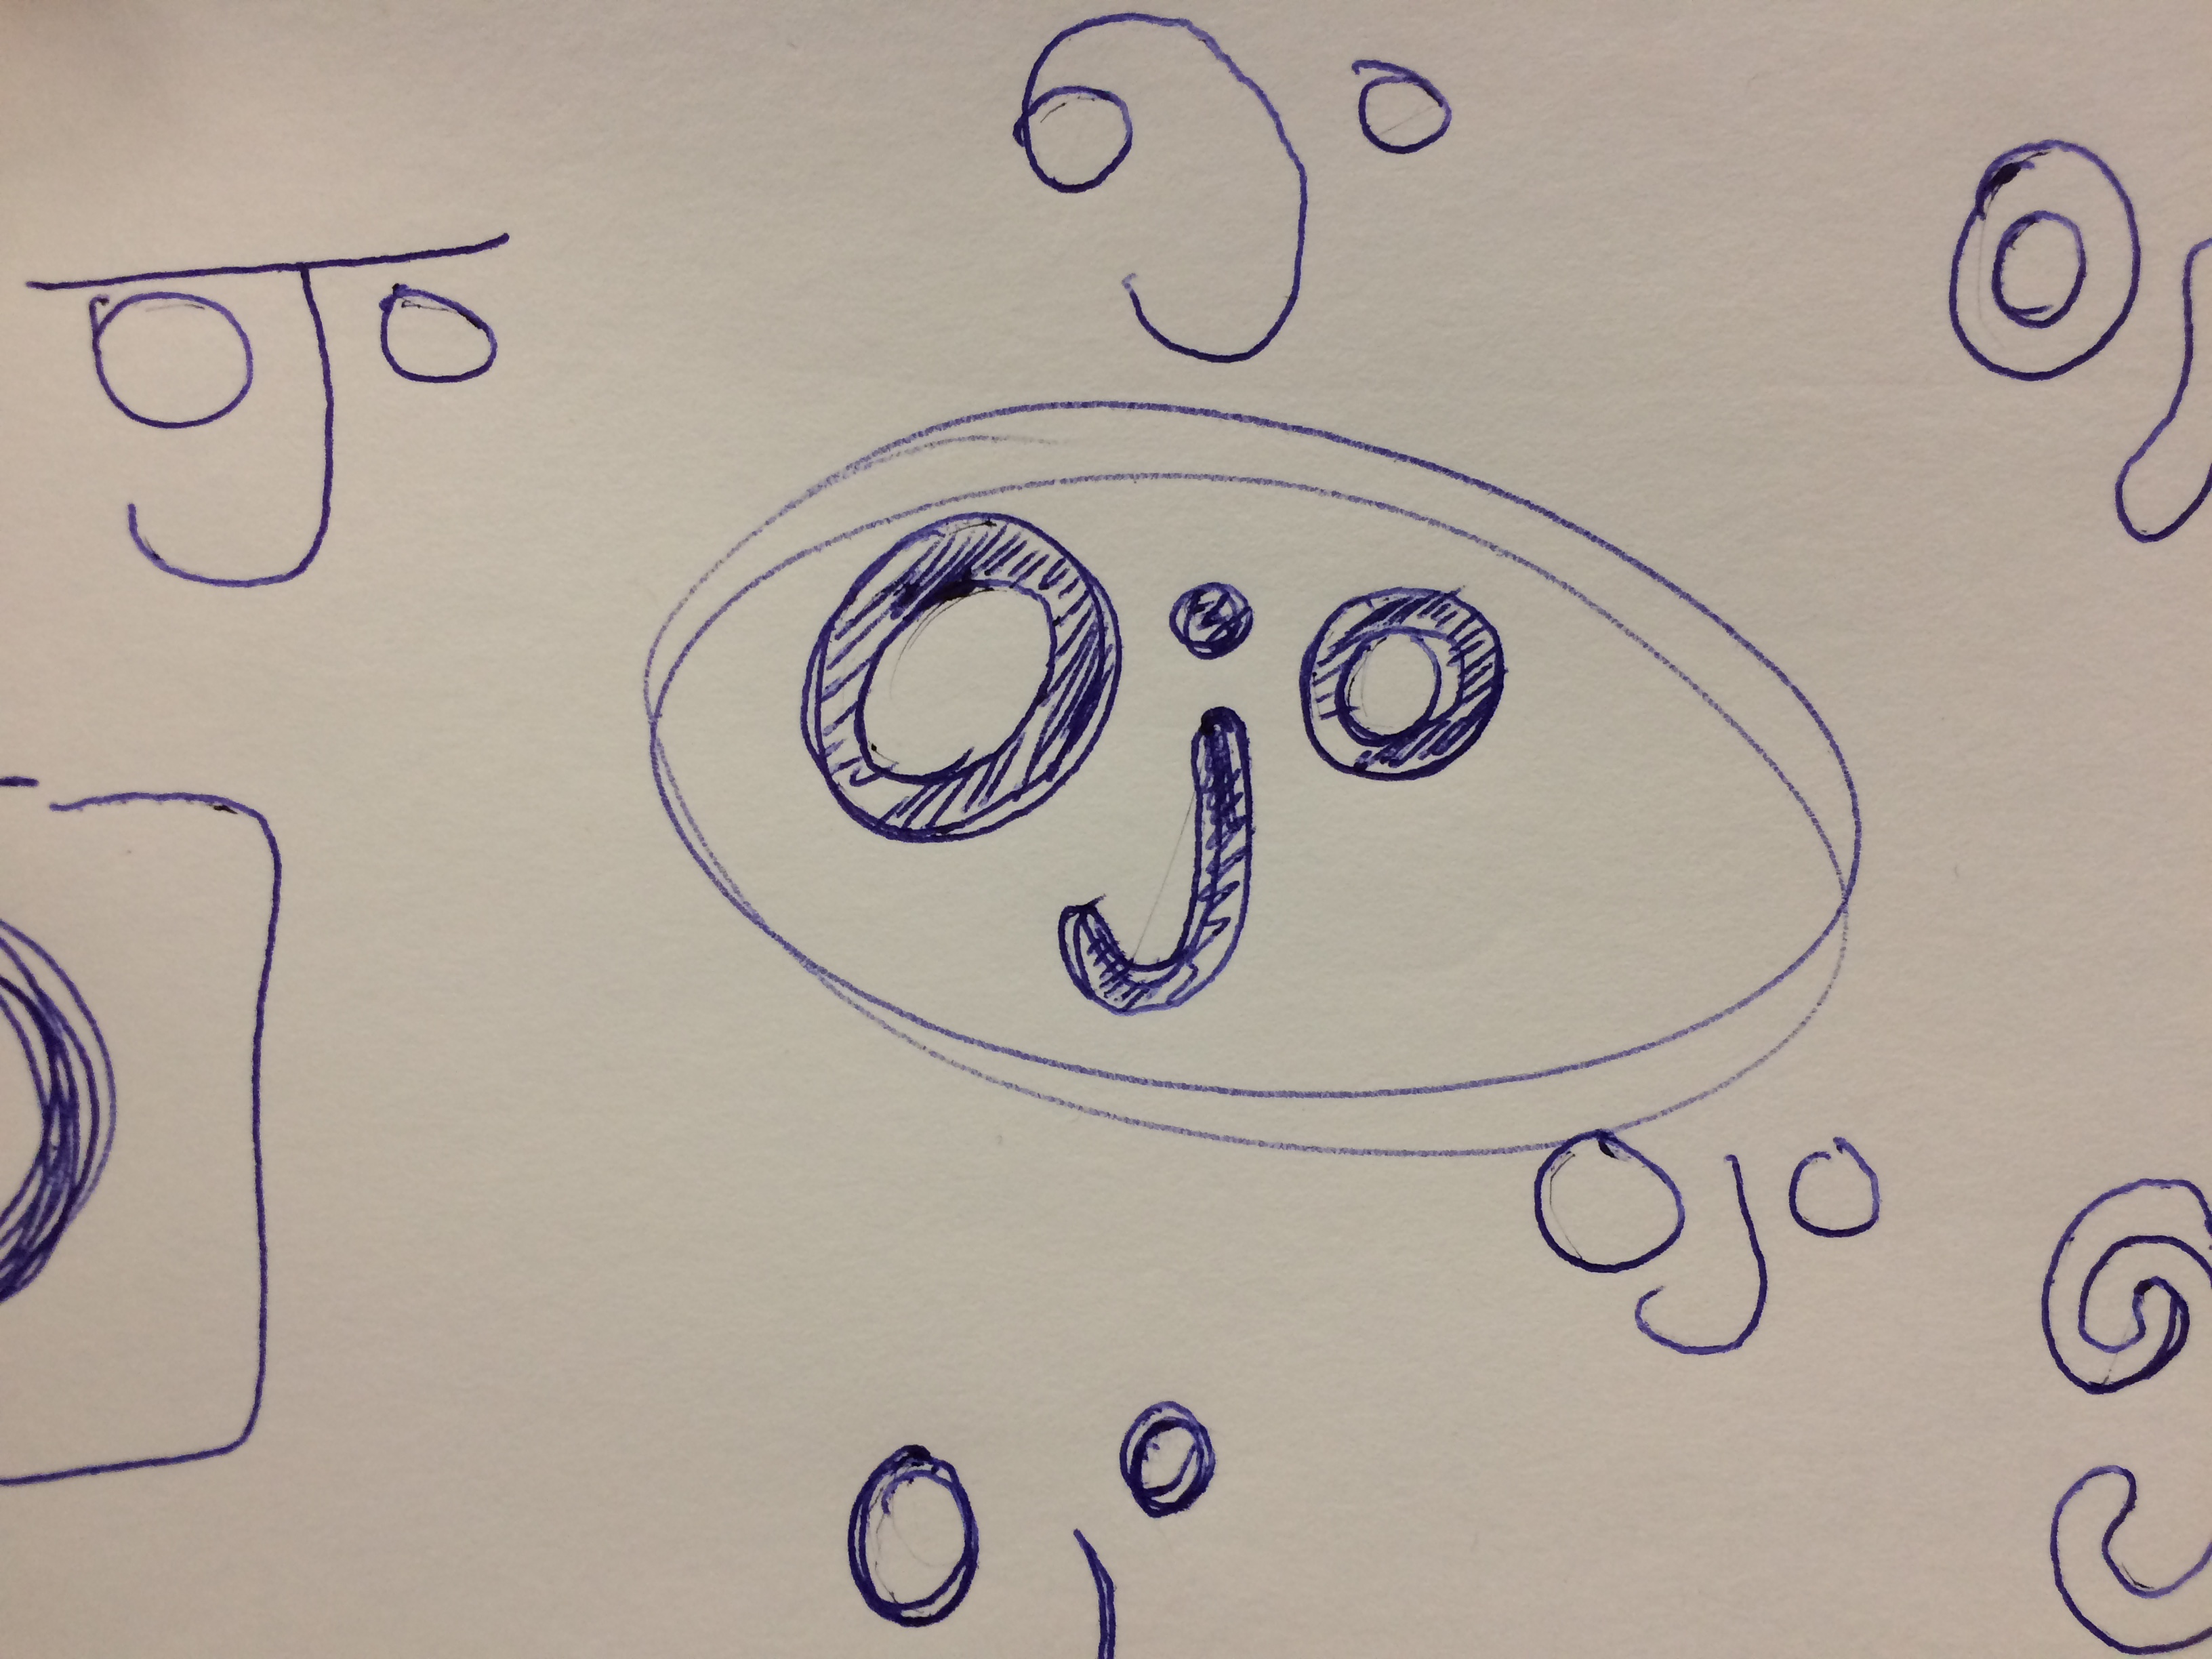 oJo
OJo
Ojo
OJo